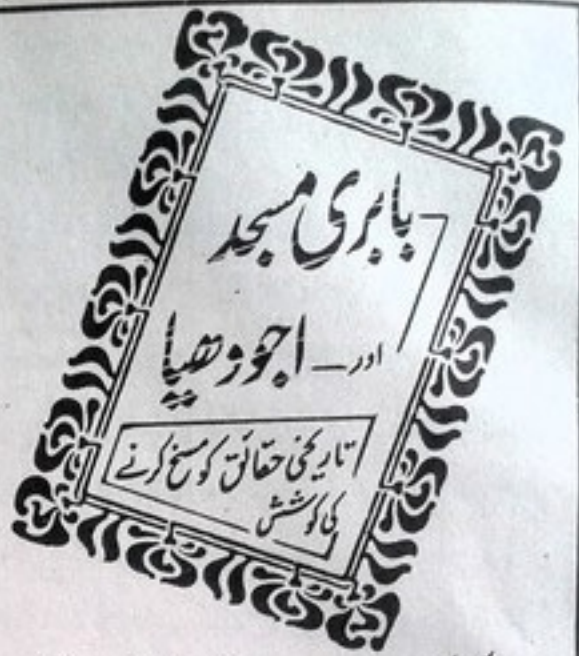 بابری مسجد
اور — اجودھیا
تاریخی حقائق کو مسخ کرنے
کی کوشش